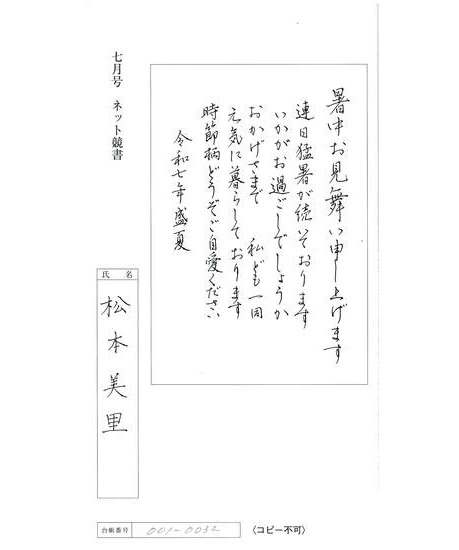 暑中お見舞い申し上げます
連日猛暑が続いております
いかがお過ごしでしょうか
おかげさまで 私ども一同
元気に暮らしております
時節柄どうぞご自愛ください
令和七年盛夏
七月号 ネット競書
氏名
松本美里
台帳番号 001-0032
〈コピー不可〉